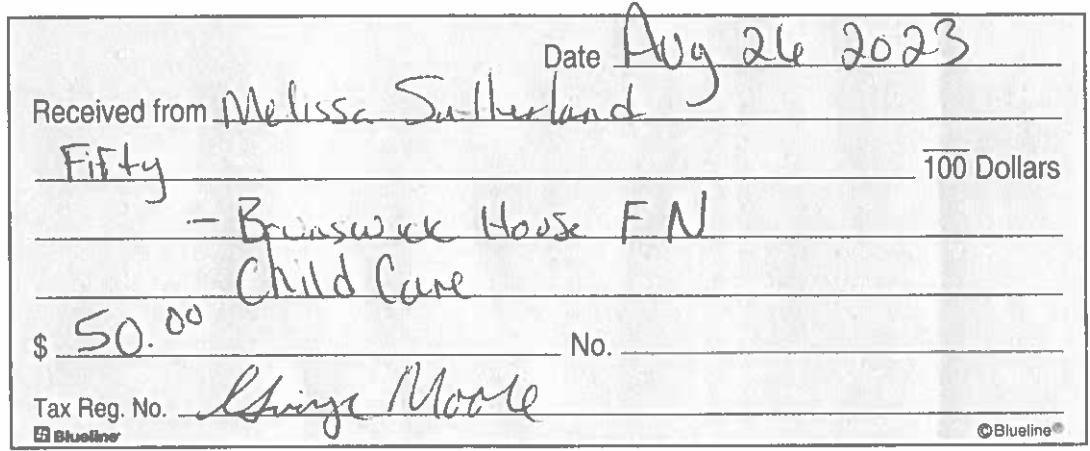 Date Aug 26 2023
Received from Melissa Sutherland
Fifty 100 Dollars
- Brunswick House FN
Child Care
$ 50.00 No.
Tax Reg. No. George Moore
Blueline ©Blueline®